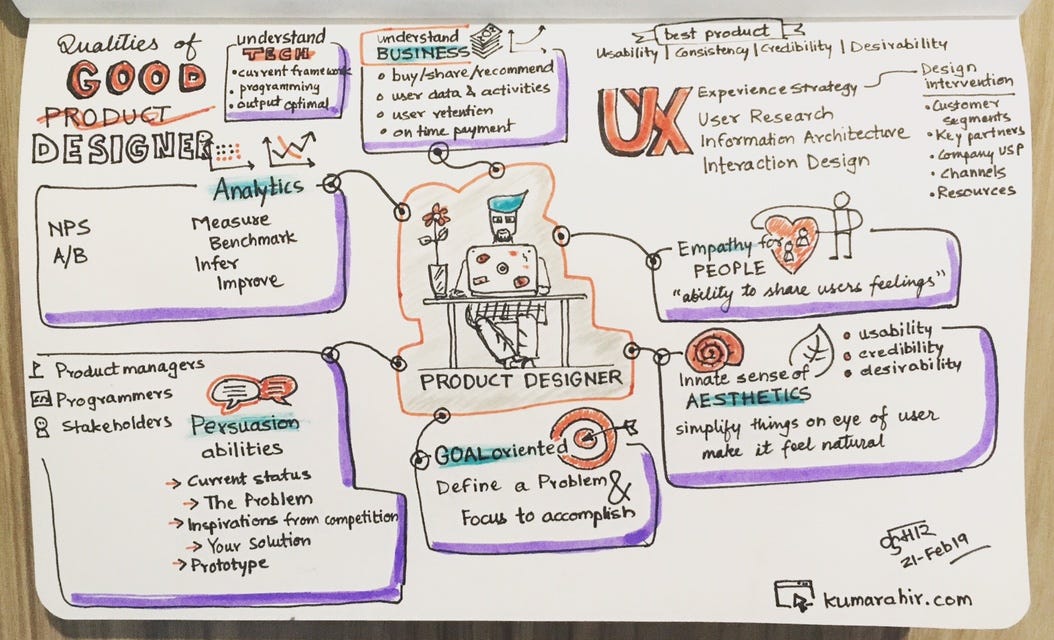 Qualities of
GOOD
PRODUCT
DESIGNER
understand
TECH
• current framework
• programming
• output optimal
understand
BUSINESS
buy/share/recommend
user data & activities
user retention
on time payment
best product
Usability | Consistency | Credibility | Desirability
UX
Experience strategy
User Research
Information Architecture
Interaction Design
Design
intervention
• Customer
segments
• Key partners
• Company USP
• Channels
• Resources
Analytics
NPS
A/B
Measure
Benchmark
Infer
Improve
Empathy for
PEOPLE
"ability to share users feelings"
PRODUCT DESIGNER
Innate sense of
AESTHETICS
• usability
• credibility
• desirability
simplify things on eye of user
make it feel natural
Product managers
Programmers
Stakeholders
Persuasion
abilities
→ Current status
→ The Problem
→ Inspirations from competition
→ Your Solution
→ Prototype
GOAL oriented
Define a Problem
&
Focus to accomplish
21-Feb19
kumarahir.com